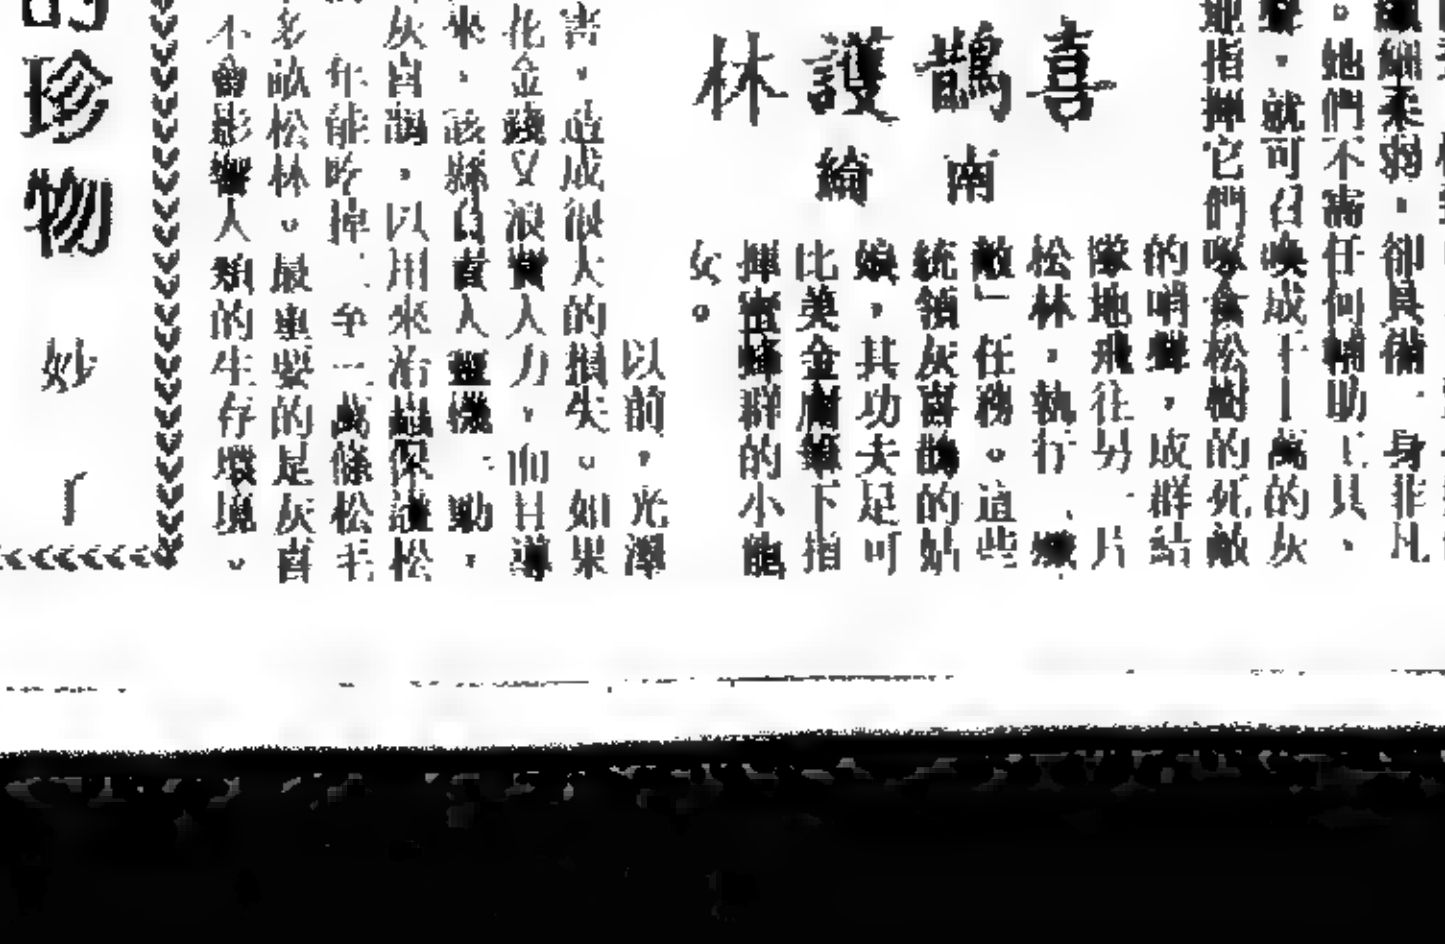 喜鵲護林
南
纖細柔弱，卻具備一身非凡
。她們不需任何輔助工具、
聲，就可召喚成千上萬的灰
地指揮它們啄食松樹的死敵
的哨聲，成群結
隊地飛往另一片
松林，執行「殲
敵」任務。這些
統領灰喜鵲的姑
娘，其功夫足可
比美金庸筆下指
揮蜜蜂群的小龍
女。
以前，光澤
害，造成很大的損失。如果
花金錢又浪費人力，而且導
來，該縣
灰喜鵲，以用來治蟲保護松
年能吃掉一至二萬條松毛
多畝松林。最重要的是灰喜
不會影響人類的生存環境。
的珍物
妙